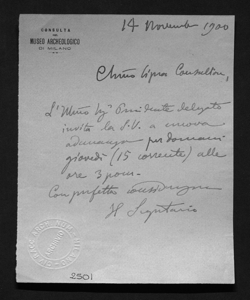 CONSULTA
DEL
MUSEO ARCHEOLOGICO
DI MILANO
14 Novembre 1900
Chmo Signor Consultore,
L'Illmo Sigr Presidente delegato
invita la S.V. a nuova
adunanza per domani
giovedì (15 corrente) alle
ore 3 pom.
Con perfetta considerazione
Il Segretario
2501